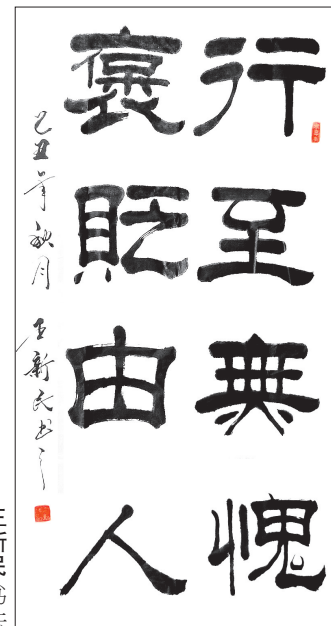 行至無愧
褒貶由人
己丑年秋月 王新民书